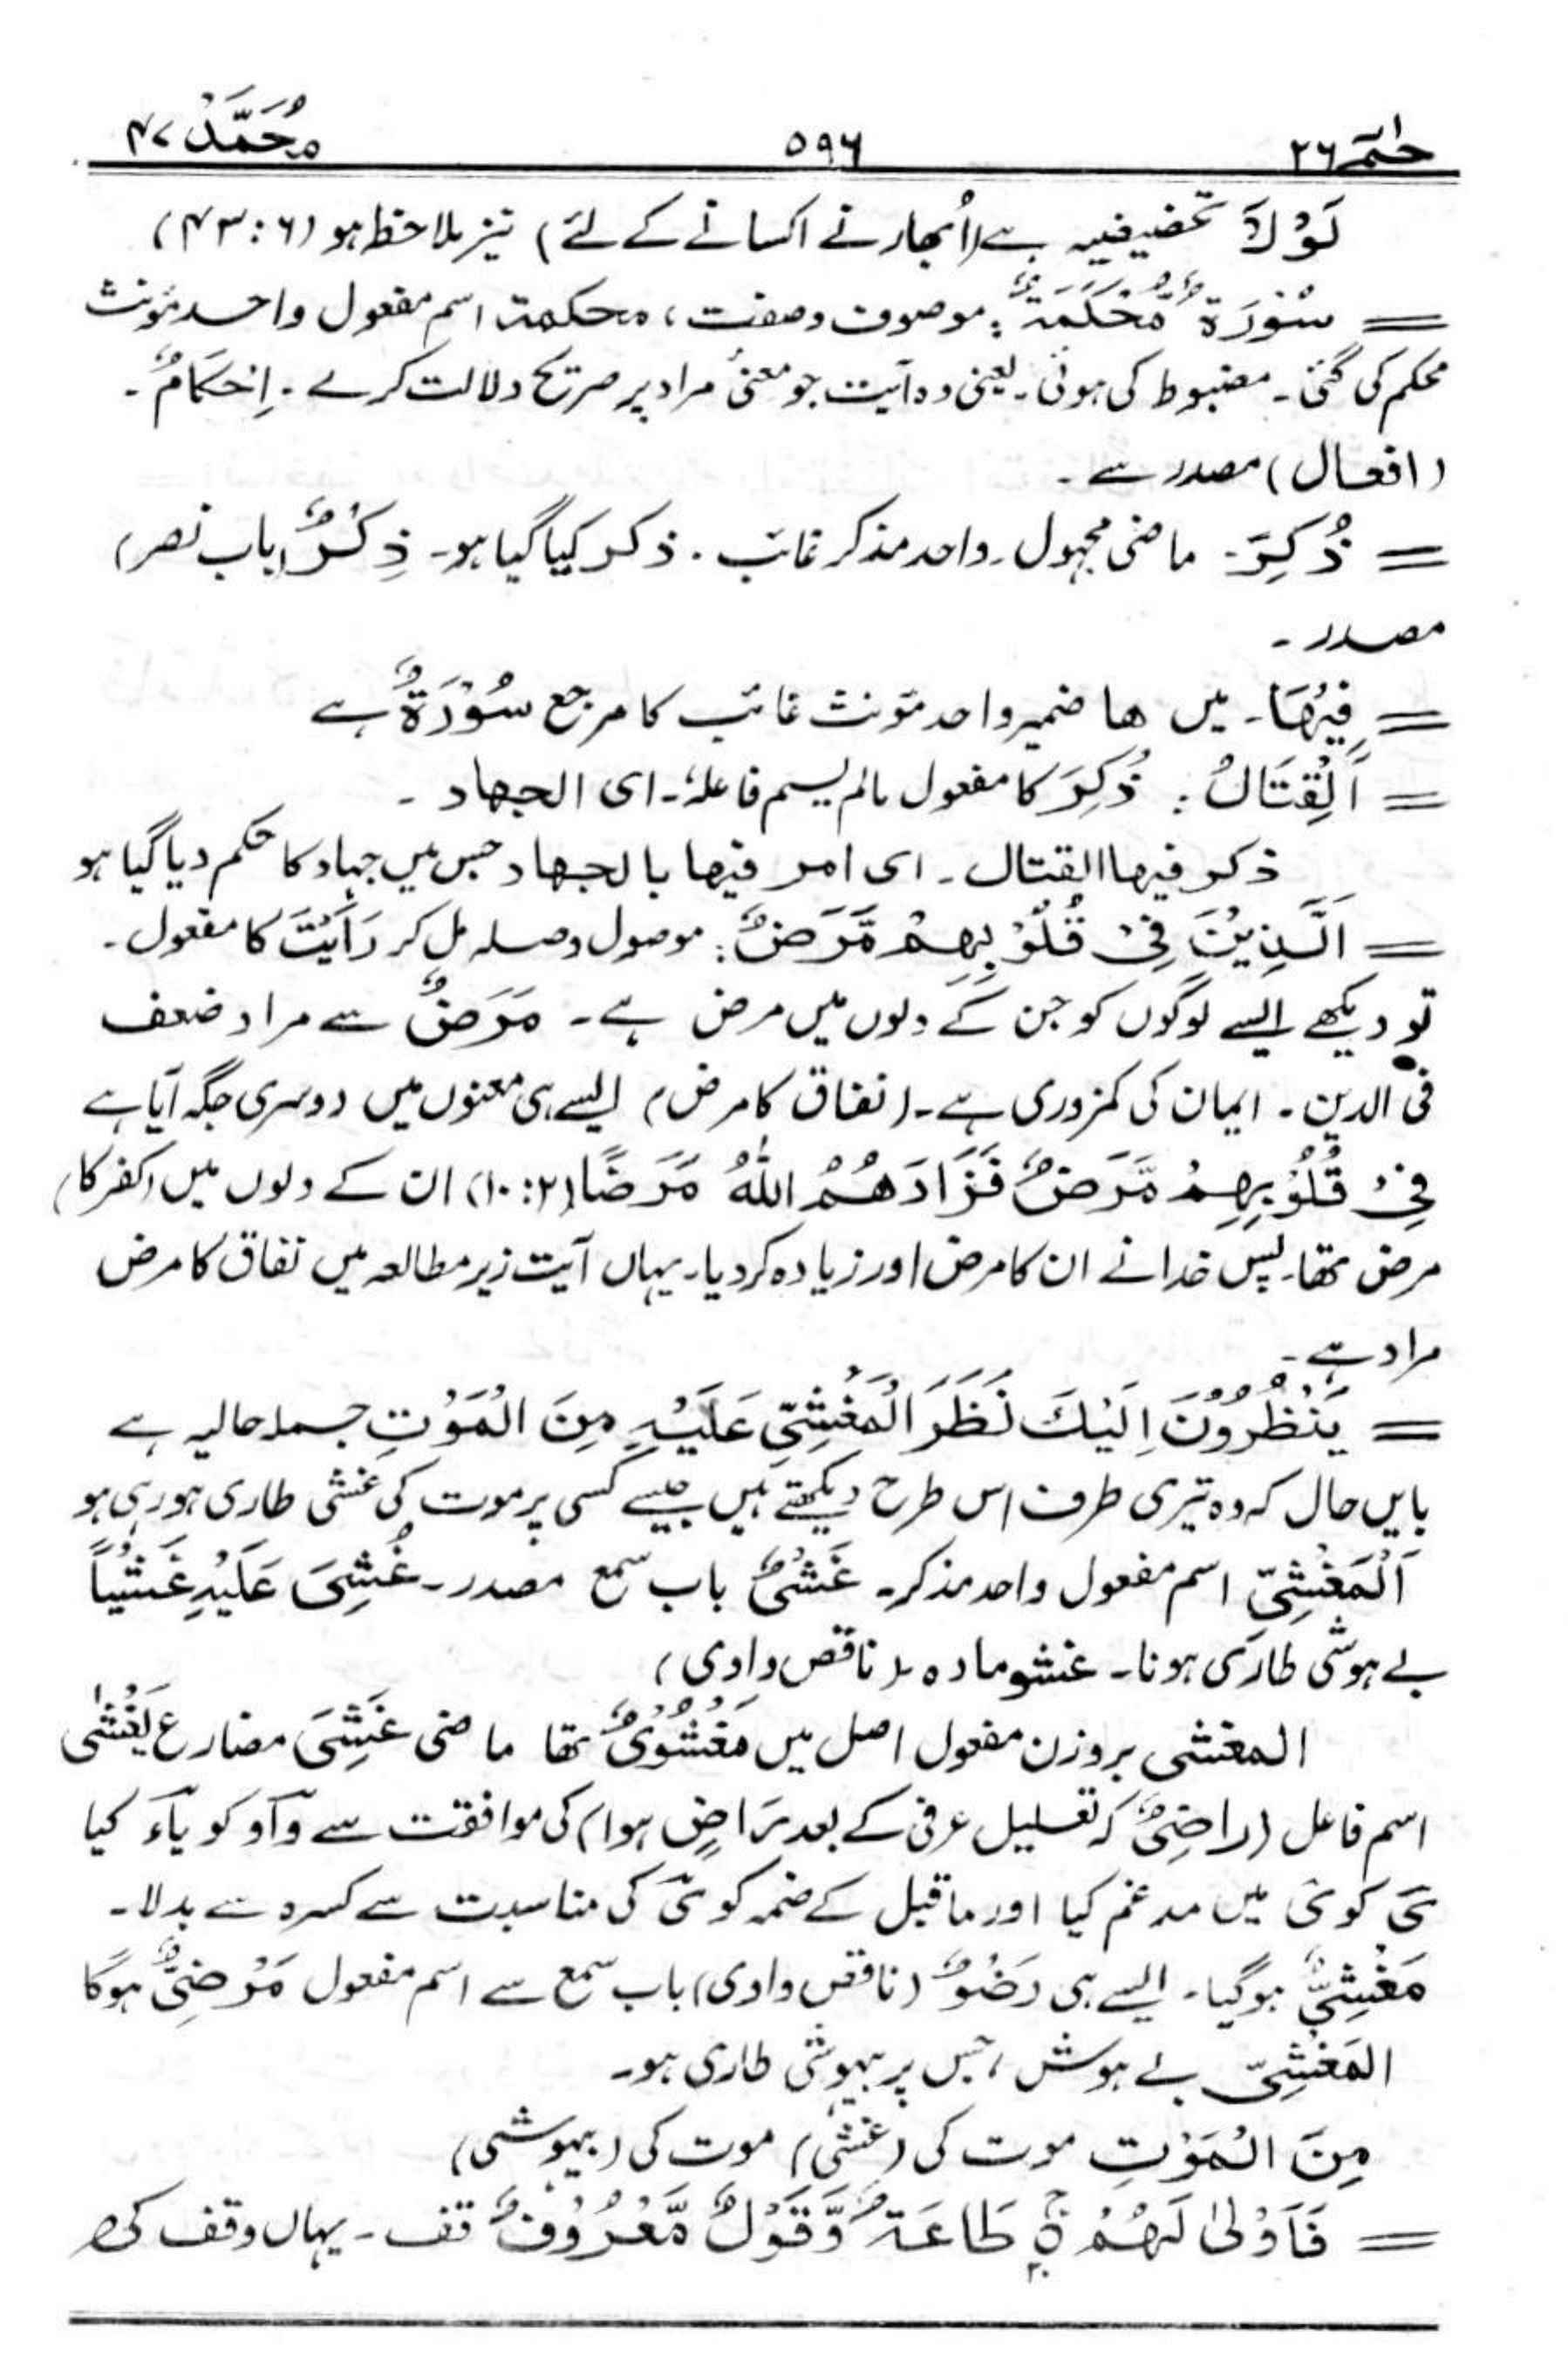 حٰمٓ ۲۶ ۵۹۶ مُحَمَّدْ ۴۷
لَوْلَآ تحضیضیہ ہے (اُبھارنے اکسانے کے لئے) نیز ملاحظہ ہو (۴۳:۶)
= سُوْرَۃٌ مُّحْکَمَۃٌ: موصوف وصفت، محکمۃ اسم مفعول واحد مؤنث
محکم کی گئی۔ مضبوط کی ہوئی۔ یعنی وہ آیت جو معنیٰ مراد پر صریح دلالت کرے۔ اِحْکَامٌ۔
(افعال) مصدر سے۔
= ذُکِرَ۔ ماضی مجہول۔ واحد مذکر غائب۔ ذکر کیا گیا ہو۔ ذِکْرٌ (باب نصر)
مصدر۔
= فِیْھَا۔ میں ھا ضمیر واحد مؤنث غائب کا مرجع سُوْرَۃٌ ہے
= اَلْقِتَالُ: ذُکِرَ کا مفعول مالم یسم فاعلہٗ۔ ای الجھاد۔
ذکر فیھا القتال۔ ای امر فیھا بالجھاد جس میں جہاد کا حکم دیا گیا ہو
= اَلَّذِیْنَ فِیْ قُلُوْبِھِمْ مَّرَضٌ: موصول وصلہ مل کر رَاَیْتَ کا مفعول۔
تو دیکھے ایسے لوگوں کو جن کے دلوں میں مرض ہے۔ مَرَضٌ سے مراد ضعف
فی الدین۔ ایمان کی کمزوری ہے۔ (نفاق کا مرض) ایسے ہی معنوں میں دوسری جگہ آیا ہے
فِیْ قُلُوْبِھِمْ مَّرَضٌ فَزَادَھُمُ اللّٰہُ مَرَضًا (۱۰:۲) ان کے دلوں میں (کفر کا)
مرض تھا۔ پس خدا نے ان کا مرض اور زیادہ کر دیا۔ یہاں آیت زیر مطالعہ میں نفاق کا مرض
مراد ہے۔
= یَنْظُرُوْنَ اِلَیْکَ نَظَرَ الْمَغْشِیِّ عَلَیْہِ مِنَ الْمَوْتِ جملہ حالیہ ہے
بایں حال کہ وہ تیری طرف اس طرح دیکھتے ہیں جیسے کسی پر موت کی غشی طاری ہو رہی ہو
اَلْمَغْشِیِّ اسم مفعول واحد مذکر۔ غَشْیٌ باب سمع مصدر۔ غُشِیَ عَلَیْہِ غَشْیًا
بے ہوشی طاری ہونا۔ غشو مادہ (ناقص واوی)
المغشی بروزن مفعول اصل میں مَغْشُوْیٌ تھا ماضی غَشِیَ مضارع یَغْشٰی
اسم فاعل (راضِیٌ کہ تعلیل عرفی کے بعد رَاضٍ ہوا) کی موافقت سے وآو کو یآء کیا
یَ کو یَ میں مدغم کیا اور ماقبل کے ضمہ کو یَ کی مناسبت سے کسرہ سے بدلا۔
مَغْشِیٌّ ہو گیا۔ ایسے ہی رَضْوٌ (ناقص واوی) باب سمع سے اسم مفعول مَرْضِیٌّ ہوگا
المَغْشِیِّ بے ہوش، جس پر بیہوشی طاری ہو۔
مِنَ الْمَوْتِ موت کی (غشی) موت کی (بیہوشی)
= فَاَوْلٰی لَھُمْ ۚ طَاعَۃٌ وَّقَوْلٌ مَّعْرُوْفٌ قف۔ یہاں وقف کی